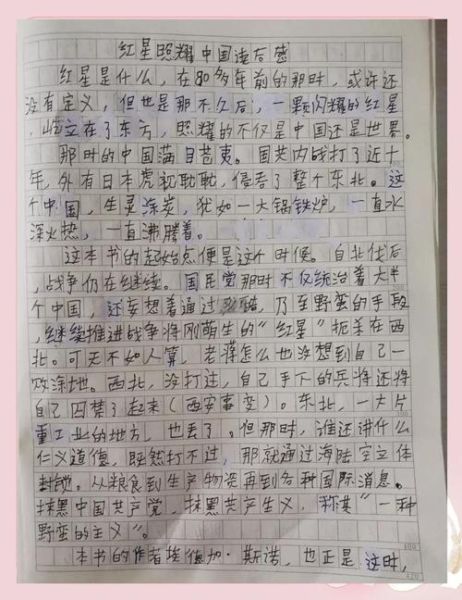 红星照耀中国读后感
红星是什么,在80多年前的那时,或许还
没有定义,但也是那不久后,一颗闪耀的红星
,屹立在了东方,照耀的不仅是中国还是世界。
那时的中国满目苍夷。国共内战打了近十
年,外有日本虎视眈眈,侵吞了整个东北。这
个中国,生灵涂炭,犹如一大锅铁炉,一直水
深火热,一直沸腾着。
这本书的起始点便是这个时候。自北伐后
,战争仍在继续。国民党那时不仅统治着大半
个中国,还妄想着通过,乃至野蛮的手段
,继续推进战争将刚萌生的“红星”扼杀在西
北。可天不如人算,老蒋怎么也没想到自己一
败涂地。西北,没打过,自己手下的兵将还将
自己囚禁了起来(西安事变)。东北,一大片
重工业的地方,也丢了。但那时,谁还讲什么
仁义道德,既然打不过,那就通过海陆空立体
封锁。从粮食到生产物资再到各种国际消息。
抹黑中国共产党,抹黑共产主义,称其“一种
野蛮的主义”。
本书的作者埃德加·斯诺,也正是这时,